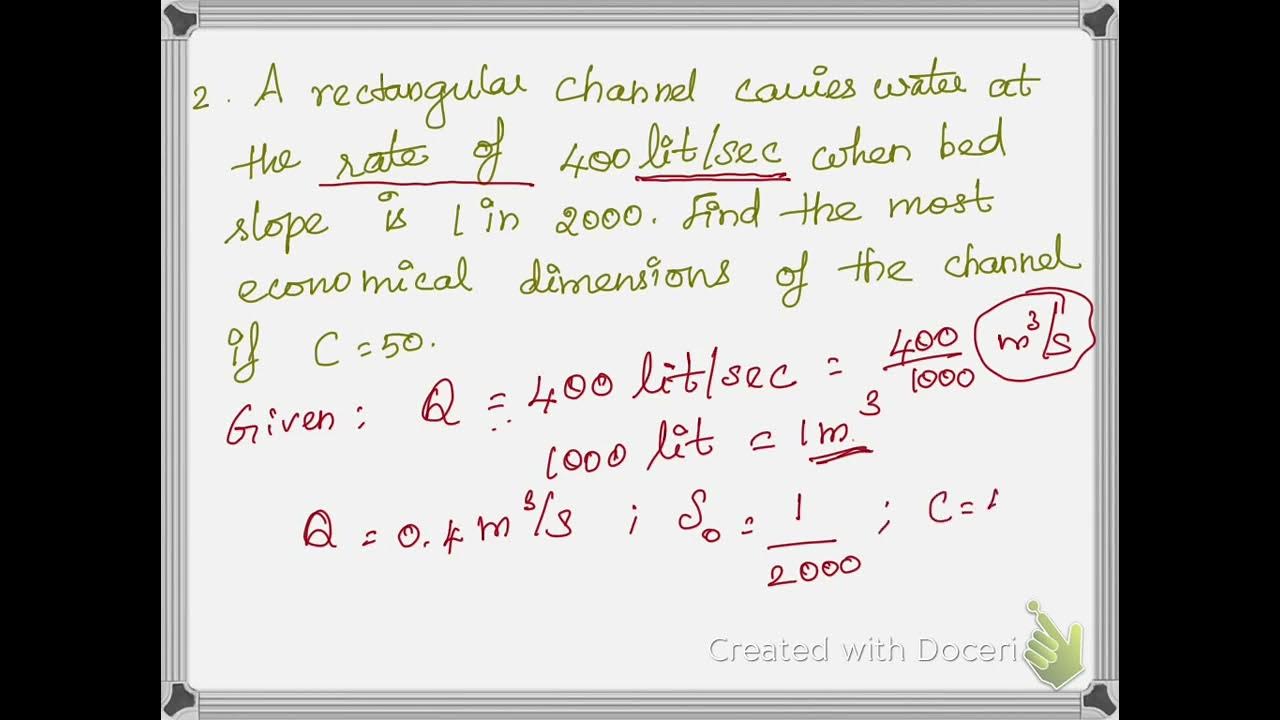 2. A rectangular channel carries water at
the rate of 400 lit/sec when bed
slope is 1 in 2000. Find the most
economical dimensions of the channel
if C = 50.
Given: Q = 400 lit/sec = 400/1000 m³/s
1000 lit = 1m³
Q = 0.4 m³/s ; S₀ = 1/2000 ; C =
Created with Doceri